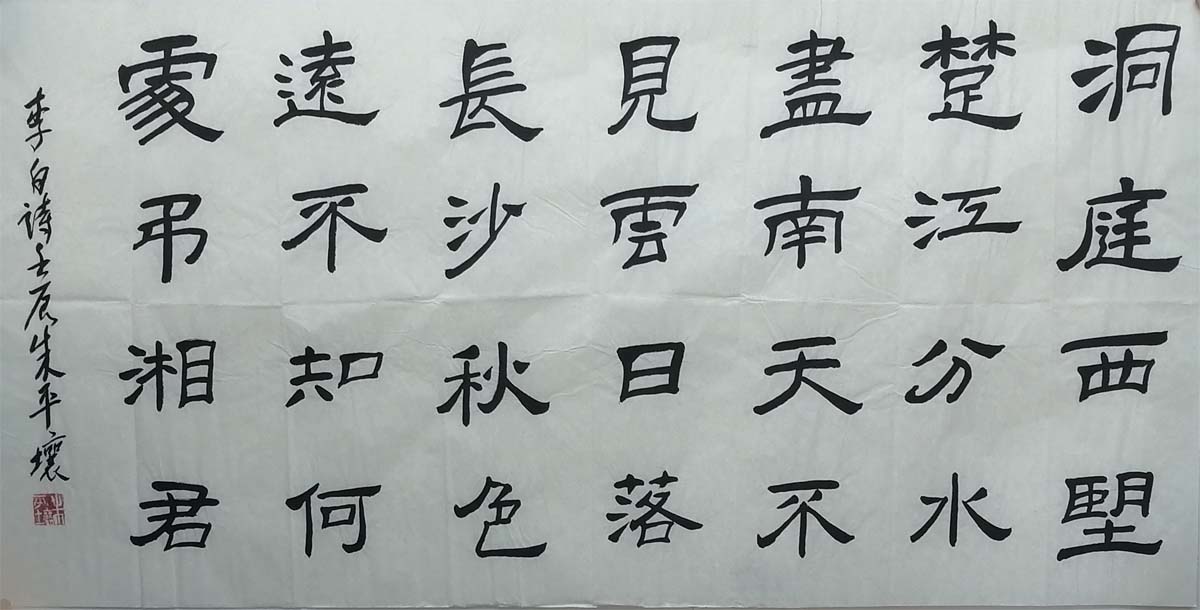 洞庭西望
楚江分水
盡南天不
見雲日落
長沙秋色
遠不知何
處弔湘君
李白詩壬辰朱平壤